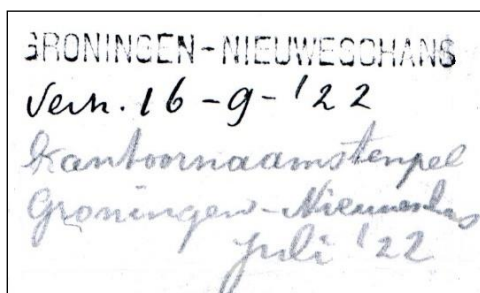 GRONINGEN-NIEUWESCHANS
Verk. 16-9-'22
Kantoornaamstempel
Groningen-Nieuweschans
juli '22